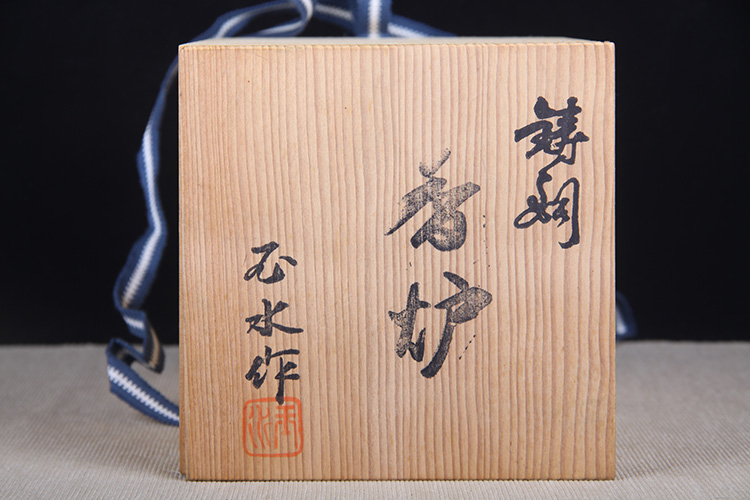 鋳銅
香炉
玉水作